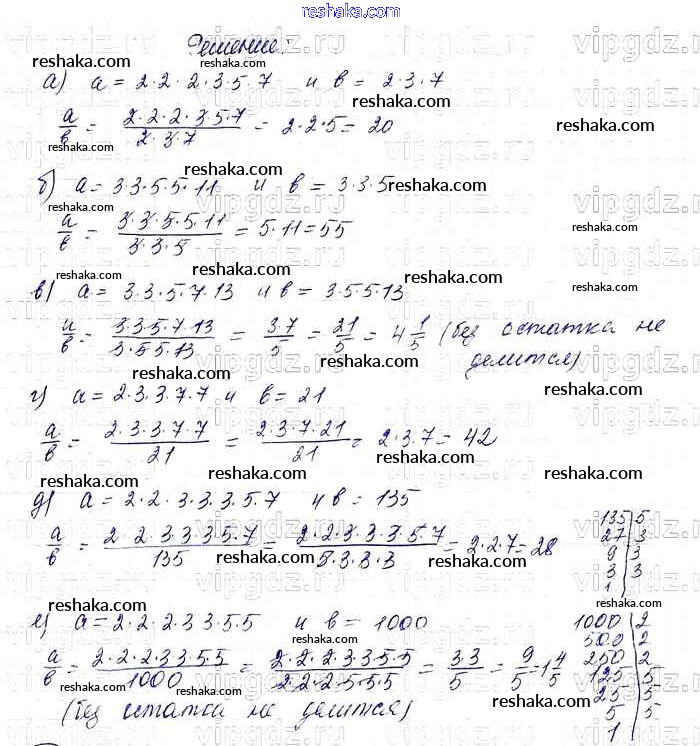 Решение:
а) a = 2·2·2·3·5·7 и b = 2·3·7
a/b = 2·2·2·3·5·7/2·3·7 = 2·2·5 = 20
б) a = 3·3·5·5·11 и b = 3·3·5
a/b = 3·3·5·5·11/3·3·5 = 5·11 = 55
в) a = 3·3·5·7·13 и b = 3·5·5·13
a/b = 3·3·5·7·13/3·5·5·13 = 3·7/5 = 21/5 = 4 1/5 (без остатка не
делится)
г) a = 2·3·3·7·7 и b = 21
a/b = 2·3·3·7·7/21 = 2·3·7·21/21 = 2·3·7 = 42
д) a = 2·2·3·3·3·5·7 и b = 135
a/b = 2·2·3·3·3·5·7/135 = 2·2·3·3·3·5·7/5·3·3·3 = 2·2·7 = 28
135 | 5
27 | 3
9 | 3
3 | 3
1 |
е) a = 2·2·2·3·3·5·5 и b = 1000
a/b = 2·2·2·3·3·5·5/1000 = 2·2·2·3·3·5·5/2·2·2·5·5·5 = 3·3/5 = 9/5 = 1 4/5
(без остатка не делится)
1000 | 2
500 | 2
250 | 2
125 | 5
25 | 5
5 | 5
1 |
reshaka.com
vipgdz.ru